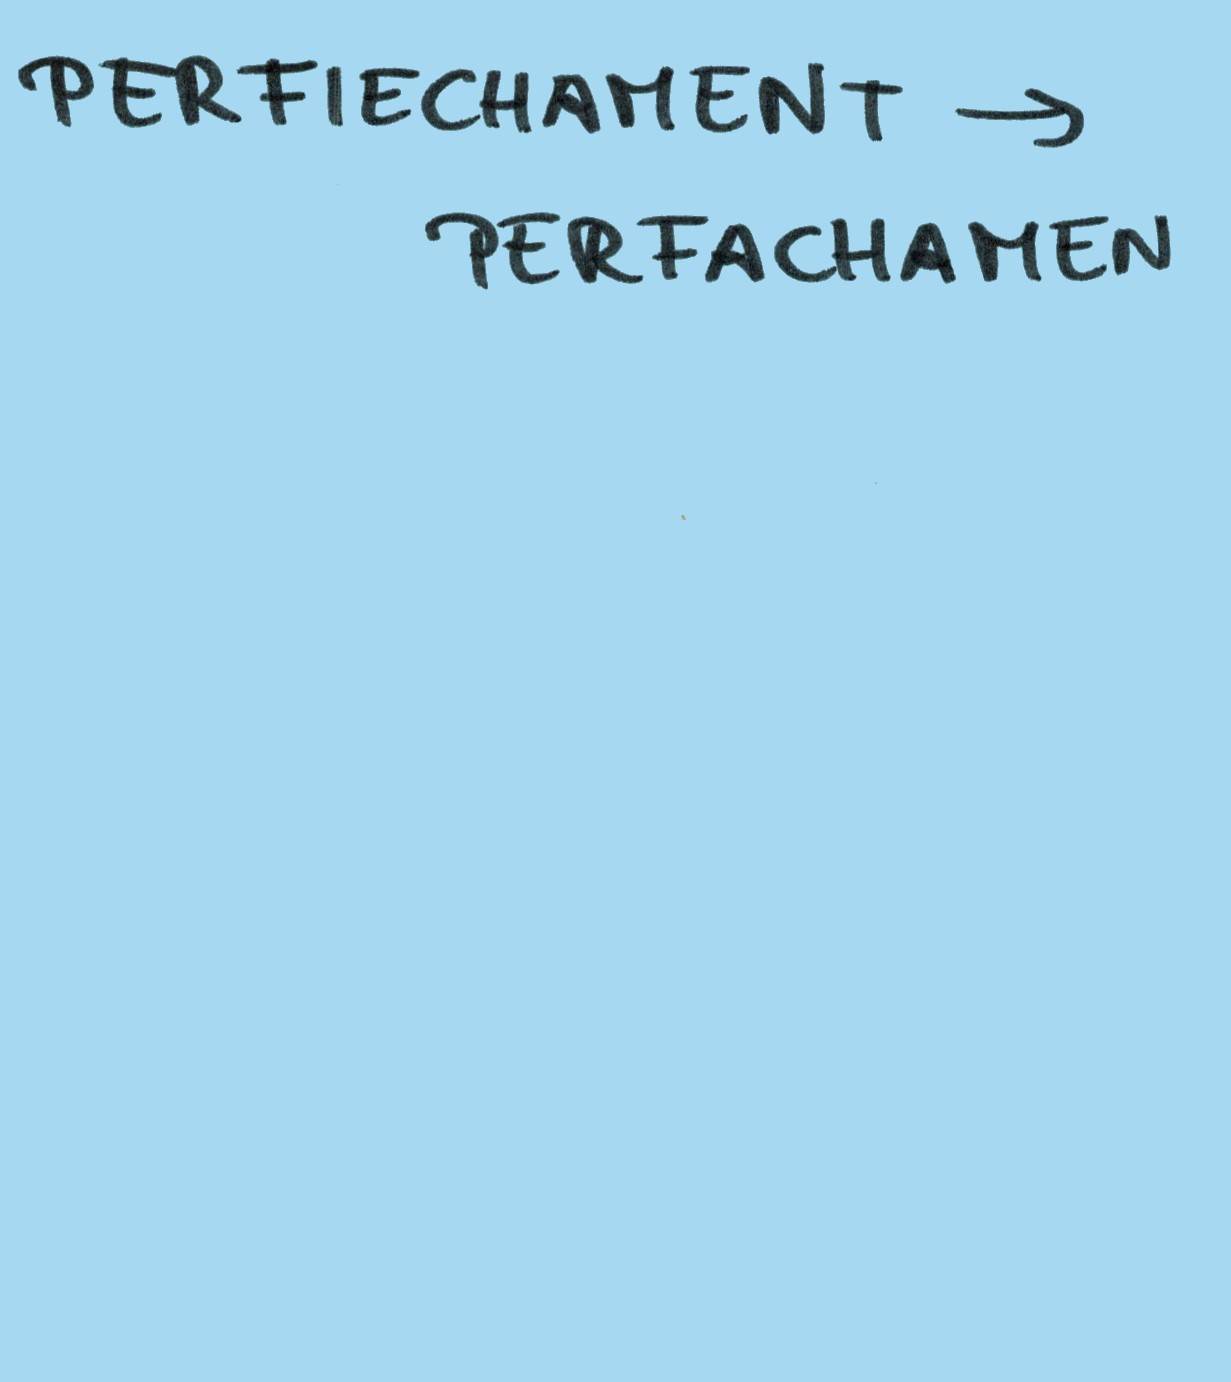 PERFIECHAMENT →
PERFACHAMEN